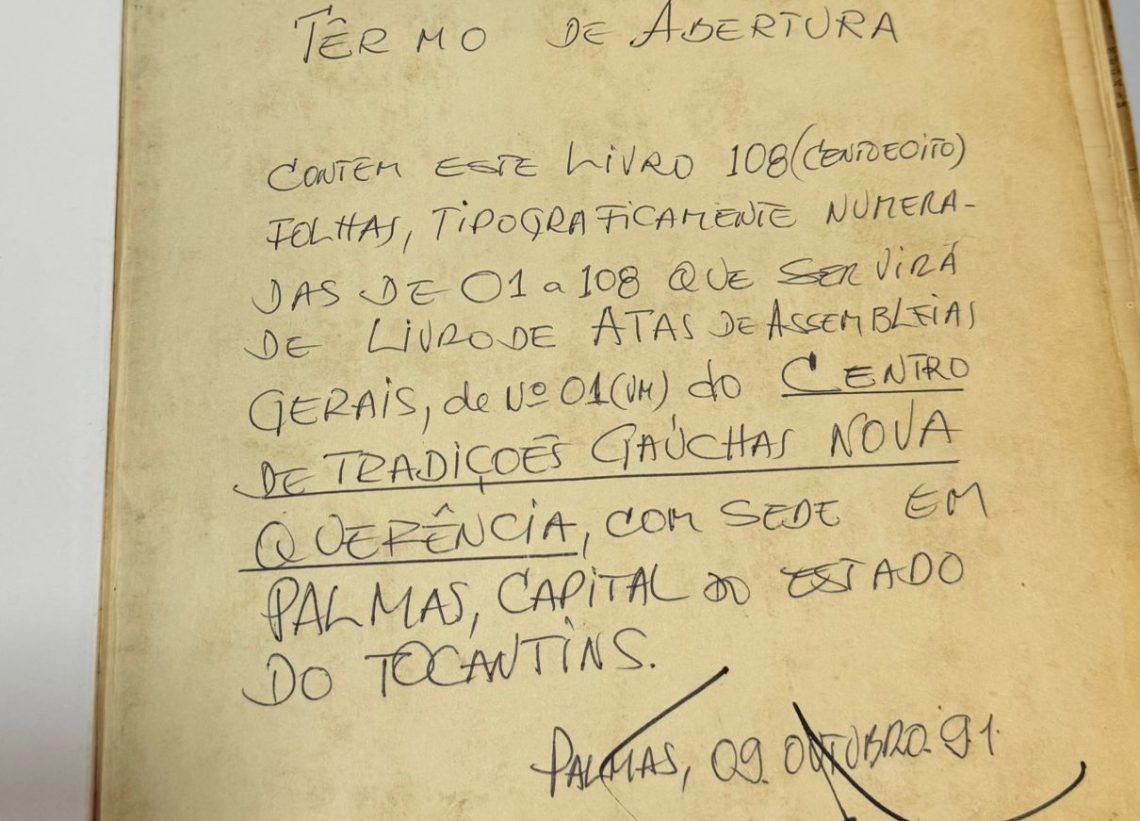 TÊRMO DE ABERTURA
CONTEM ESTE LIVRO 108 (CENTOEOITO)
FOLHAS, TIPOGRAFICAMENTE NUMERA-
DAS DE 01 a 108 QUE SERVIRÁ
DE LIVRO DE ATAS DE ASSEMBLEIAS
GERAIS, de Nº 01 (UM) do CENTRO
DE TRADIÇÕES GAÚCHAS NOVA
QUERÊNCIA, COM SEDE EM
PALMAS, CAPITAL DO ESTADO
DO TOCANTINS.
PALMAS, 09. OUTUBRO. 91.